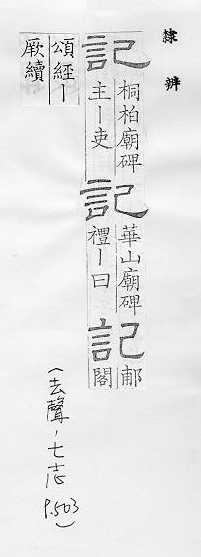 隸辨
記桐柏廟碑
主丨吏
記華山廟碑
禮丨曰
記郙閣
頌經丨
厥續
(去聲·七志 P.503)